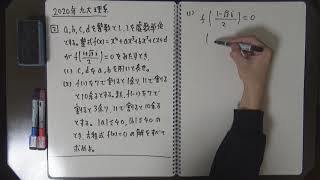 2020年 九大 理系
2 a, b, c, d を整数とし, i を虚数単位
とする。整式 f(x) = x⁴+ax³+bx²+cx+d
が f(1+√3i/2) = 0 をみたすとき
(1) c, d を a, b を用いて表せ。
(2) f(1)を7で割ると
1, 11で割る
と10余るとする。また, f(-1)を7で
割ると3余り, 11で割ると10余る
とする。|a|≦40, |b|≦40 の
とき, 方程式 f(x)=0 の解をすべて
求めよ。
(1) f(1-√3i/2) = 0